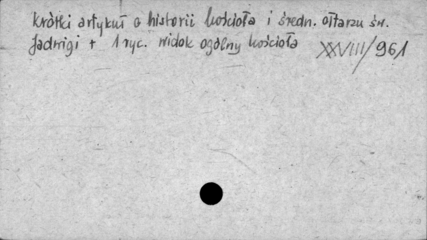 krótki artykuł o historii kościoła i średn. ołtarzu św.
Jadwigi + 1 ryc. widok ogólny kościoła XXVIII/961